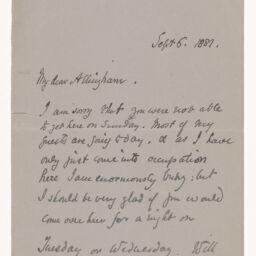 Sept 6. 1887.
My dear Allingham.
I am sorry that you were not able
to get here on Sunday. Most of my
guests are going today, & as I have
only just come into occupation
here I am enormously busy: but
I should be very glad if you would
come over here for a night on
Tuesday or Wednesday. Will